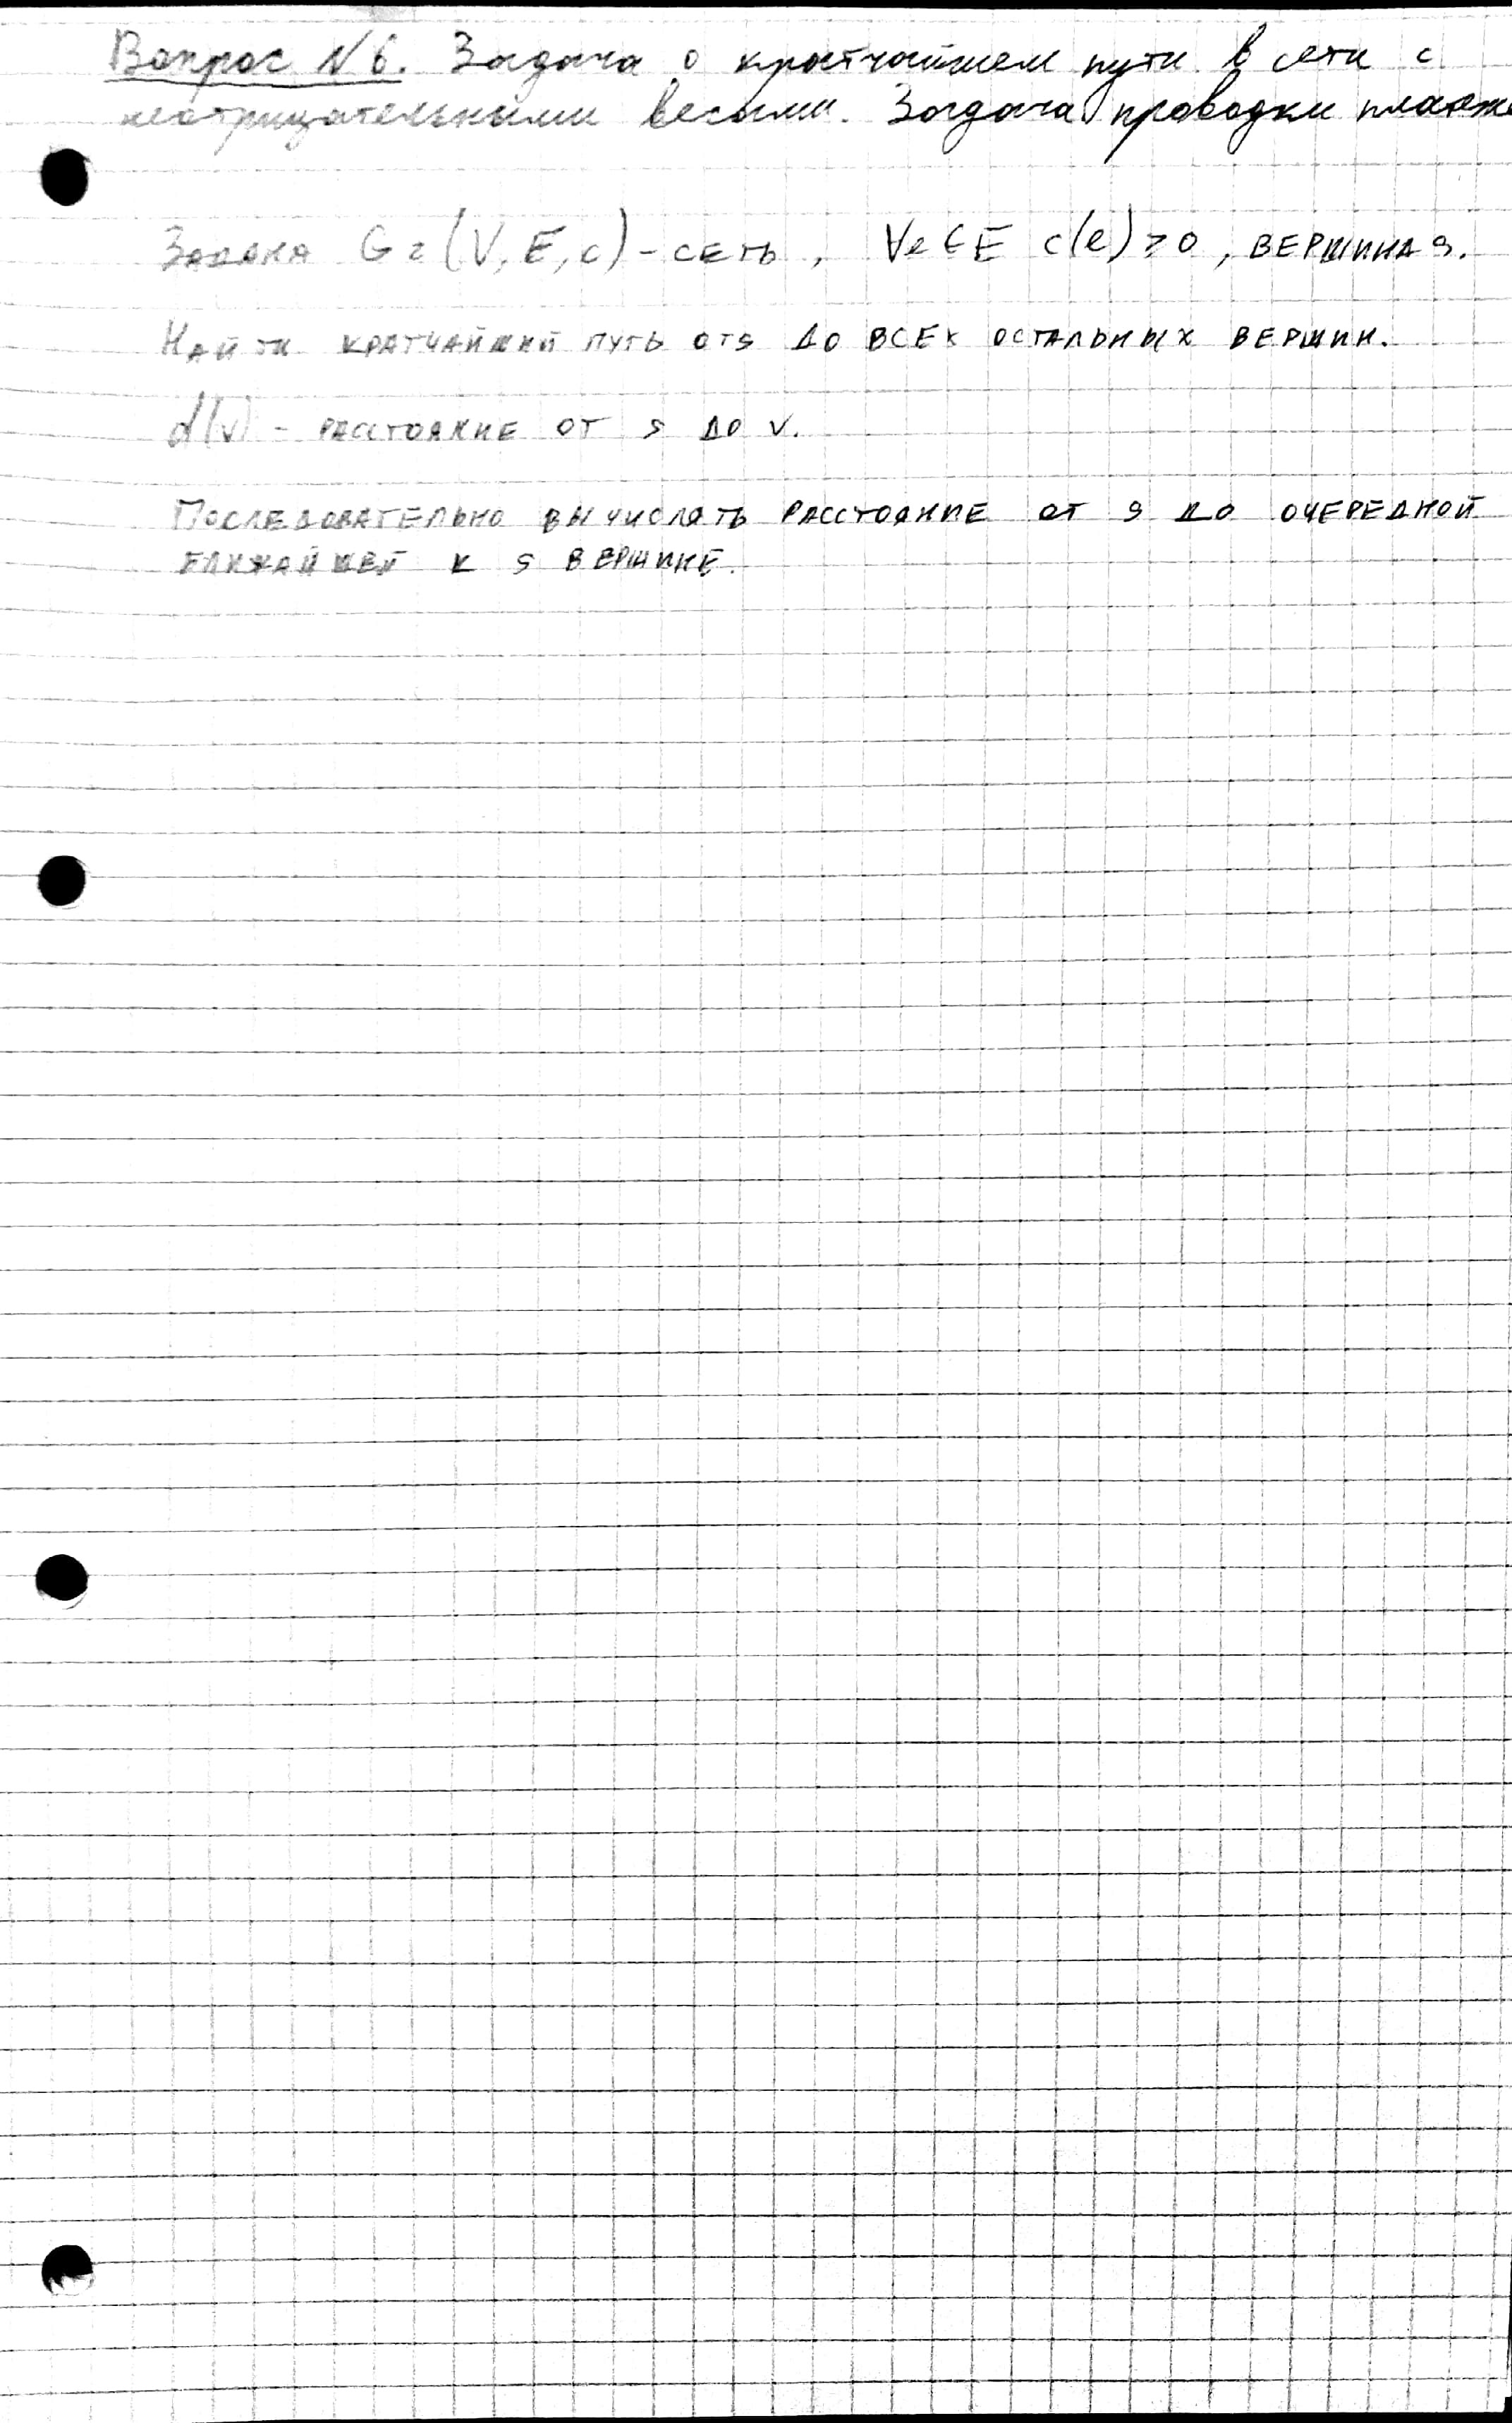 Вопрос №6. Задача о кратчайшем пути в сети с
неотрицательными весами. Задача проводки
ЗАДАНА G=(V,E,c)-СЕТЬ, ∀e∈E c(e)≥0, ВЕРШИНА s.
НАЙТИ КРАТЧАЙШИЙ ПУТЬ ОТ s ДО ВСЕХ ОСТАЛЬНЫХ ВЕРШИН.
d(v) - РАССТОЯНИЕ ОТ s ДО v.
ПОСЛЕДОВАТЕЛЬНО ВЫЧИСЛЯТЬ РАССТОЯНИЕ ОТ s ДО ОЧЕРЕДНОЙ
БЛИЖАЙШЕЙ К s ВЕРШИНЕ.